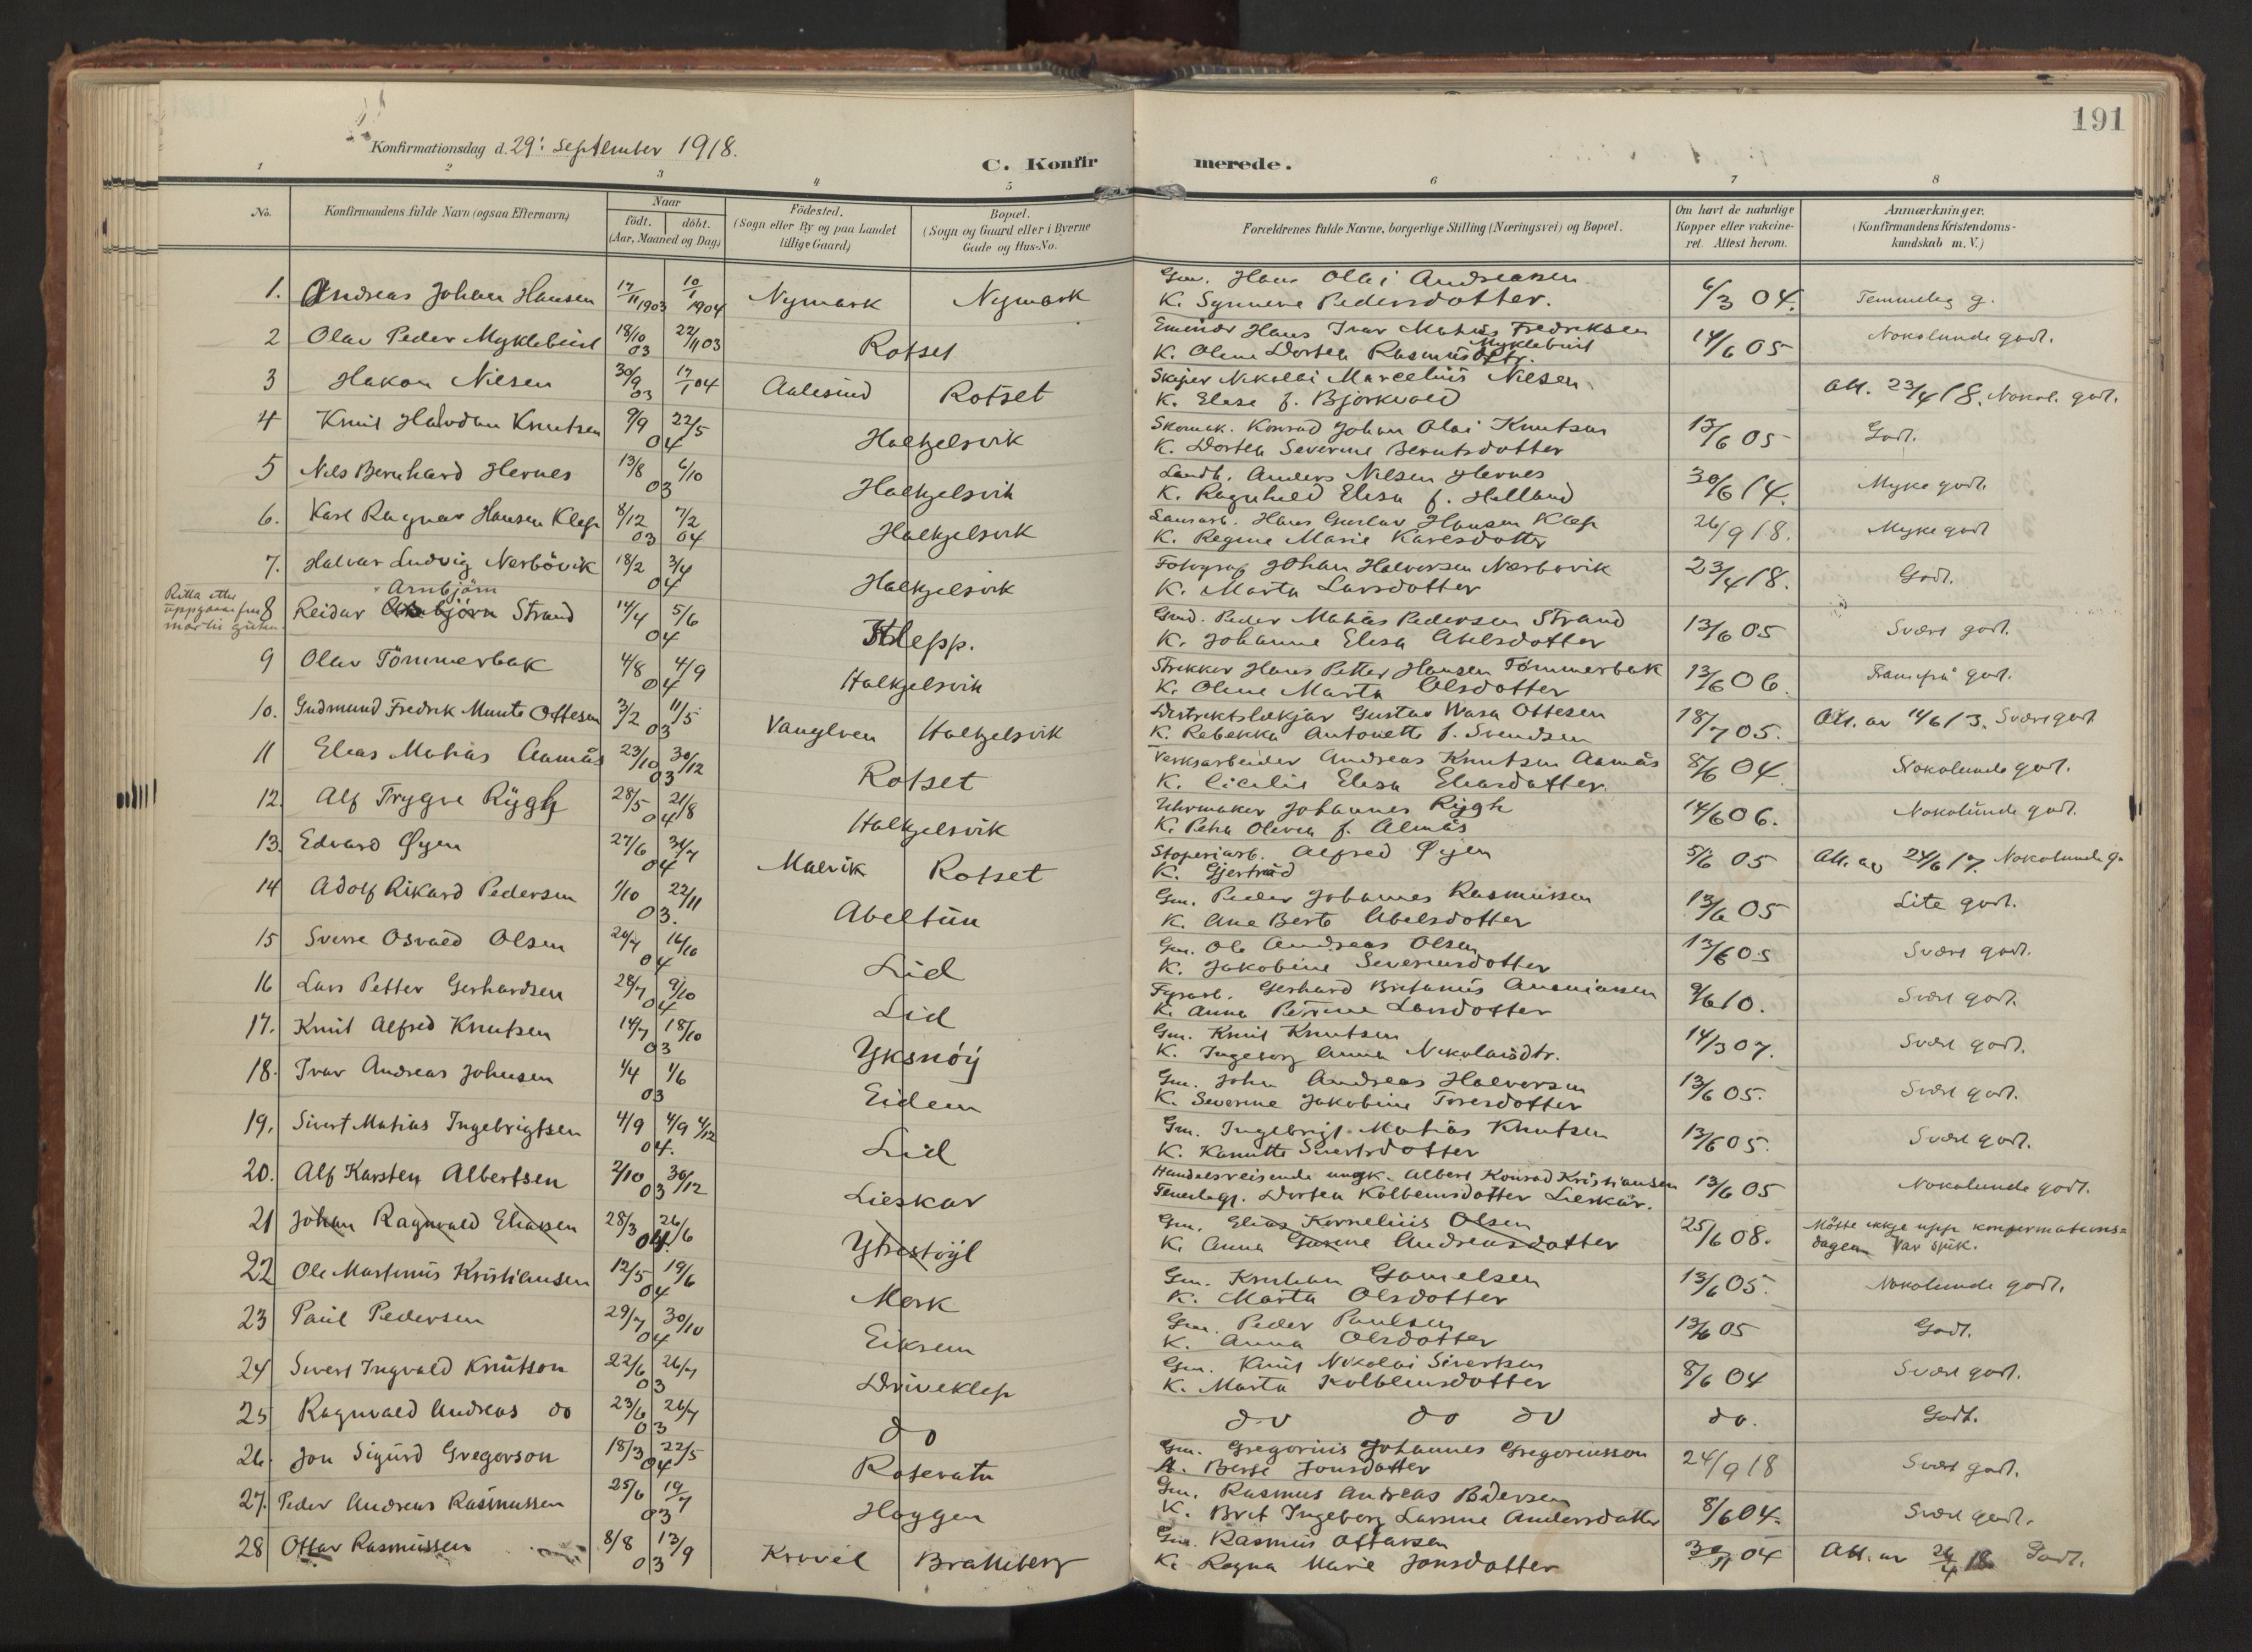 191
Konfirmationsdag d. 29: september 1918.
C. Konfirmerede.
1 2 3 4 5 6 7 8
No. Konfirmandens fulde Navn (ogsaa Efternavn) Naar födt. döbt. (Aar, Maaned og Dag) Födested. (Sogn eller By og paa Landet tillige Gaard) Bopæl. (Sogn og Gaard eller i Byerne Gade og Hus-No. Forældrenes fulde Navne, borgerlige Stilling (Næringsvei) og Bopæl. Om havt de naturlige Kopper eller vakcineret. Attest herom. Anmærkninger. (Konfirmandens Kristendomskundskab m. V.)
1. Andreas Johan Hansen 17/11 1903 10/1 1904 Nymark Nymark Gm. Hans Olai Andreassen 6/3 04. Temmeleg g.
K. Synneve Pedersdotter.
2 Olav Peder Myklebust 18/10 03 22/11 03 Rotset Hans Ivar Matias Fredriksen Myklebust 14/6 05 Nokolunde godt.
K. Oline Dortea Rasmusdtr.
3 Hakon Nilsen 30/9 03 17/1 04 Aalesund Rotset Skiper Nikolai Marcelius Nilsen Att. 23/4 18. Nokol. godt.
K. Elise f. Björkvald
4 Knut Halvdan Knutsen 9/9 22/5 04 Halkjelsvik Skomak. Konrad Johan Olai Knutsen 13/6 05 Godt.
K. Dortea Severine Berntsdotter
5 Nils Bernhard Hernes 13/8 6/10 03 Halkjelsvik Landh. Anders Nilsen Hernes 30/6 14. Mykje godt.
K. Ragnhild Elisa f. Helland
6. Karl Ragnar Hansen Klep 8/12 03 7/2 04 Halkjelsvik Hans Gustav Hansen Klep 26/9 18. Mykje godt
K. Regine Marie Karlsdotter
7. Halvar Ludvig Nerbövik 18/2 3/4 04 Halkjelsvik Fotograf Johan Halvorsen Nerbövik 23/4 18. Godt.
K. Marta Larsdotter
Retta etter uppgaave fraa
Arnbjörn
8 Reidar Strand 14/4 5/6 04 Klepp. Gmd. Peder Matias Pedersen Strand 13/6 05 Svært godt.
K. Johanne Elisa Abelsdotter
9 Olav Tömmerbak 4/8 4/9 04 Halkjelsvik Strikker Hans Petter Hansen Tömmerbak 13/6 06. Framifrå godt.
K. Oline Marta Olsdotter
10. Gudmund Fredrik Munte Ottesen 3/2 11/5 03 Vanylven Halkjelsvik Distriktslækjar Gustav Wasa Ottesen 18/7 05. Att. av 14/6 13. Svært godt
K. Rebekka Antonette f. Svendsen
11 Elias Matias Aamås 23/10 30/12 03 Rotset Verksarbeider Andreas Knutsen Aamås 8/6 04 Nokolunde godt.
K. Cicilie Elisa Eliasdatter
12. Alf Trygve Rygh 28/5 21/8 04 Halkjelsvik Uhrmaker Johannes Rygh 14/6 06. Nokolunde godt.
K. Petra Olivea f. Almås
13. Edvard Öyen 27/6 31/7 04 Malvik Rotset Stoperiarb. Alfred Öyen 5/6 05 Att. av 24/6 17. Nokolunde g.
K. Gjertrud
14 Adolf Rikard Pedersen 1/10 22/11 03. Abeltun Gm. Peder Johannes Rasmussen 13/6 05 Lite godt.
K. Ane Berte Abelsdotter
15 Sverre Osvald Olsen 20/7 16/10 04 Lid Gm. Ole Andreas Olsen 13/6 05 Svært godt.
K. Jakobine Severinsdotter
16 Lars Petter Gerhardsen 28/7 9/10 04 Lid Fyrarb. Gerhard Ananiassen 9/6 10. Svært godt.
K. Anna Petrine Larsdotter
17. Knut Alfred Knutsen 14/7 18/10 03 Yksnöy Gm. Knut Knutsen 14/3 07. Svært godt.
K. Ingeborg Anna Nikolaisdtr.
18. Ivar Andreas Johnsen 1/4 1/6 03 Eidem Gm. John Andreas Halvorsen 13/6 05. Svært godt.
K. Severine Jakobine Toresdotter
19. Sivert Matias Ingebrigtsen 4/9 4/9 4/12 04. Lid Gm. Ingebrigt Matias Knutsen 13/6 05. Svært godt.
K. Kanutte Sivertsdotter
20. Alf Karsten Albertsen 2/10 30/12 03 Lieskar Handelsreisende ungk. Albert Konrad Kristiansen 13/6 05 Nokolunde godt.
Dortea Kolbeinsdotter Lieskår.
21 Johan Ragnvald Eliassen 28/3 26/6 04. Ytrestöyl Gm. Elias Kornelius Olsen 25/6 08. Mötte ikkje upp konfirmationsdagen Var sjuk.
K. Anna Gurine Andreasdatter
22 Ole Martinus Kristiansen 12/5 19/6 04 Mork Gm. Kristian Gamelsen 13/6 05. Nokolunde godt.
K. Marta Olsdotter
23 Paul Pedersen 29/7 30/10 04 Eiksem Gm. Peder Paulsen 13/6 05 Godt.
K. Anna Olsdotter
24 Sivert Ingvald Knutson 22/6 26/7 03 Driveklep Gm. Knut Nikolai Sivertsen 8/6 04 Svært godt.
K. Marta Kolbeinsdotter
25 Ragnvald Andreas do 23/6 26/7 03 do do do do do. Godt.
26. Jon Sigurd Gregorson 18/3 22/5 04 Rotevatn Gm. Gregorius Johannes Gregoriusson 24/9 18 Svært godt.
K. Berte Jonsdotter
27. Peder Andreas Rasmussen 25/6 19/7 03 Hoggen Gm. Rasmus Andreas Pedersen 8/6 04. Svært godt.
K. Brit Ingeborg Larsine Andersdatter
28 Ottar Rasmussen 8/8 13/9 03 Krovil Bratteberg Gm. Rasmus Ottarsen 30/11 04 Att. av 26/4 18 Godt.
K. Ragna Marie Jonsdotter